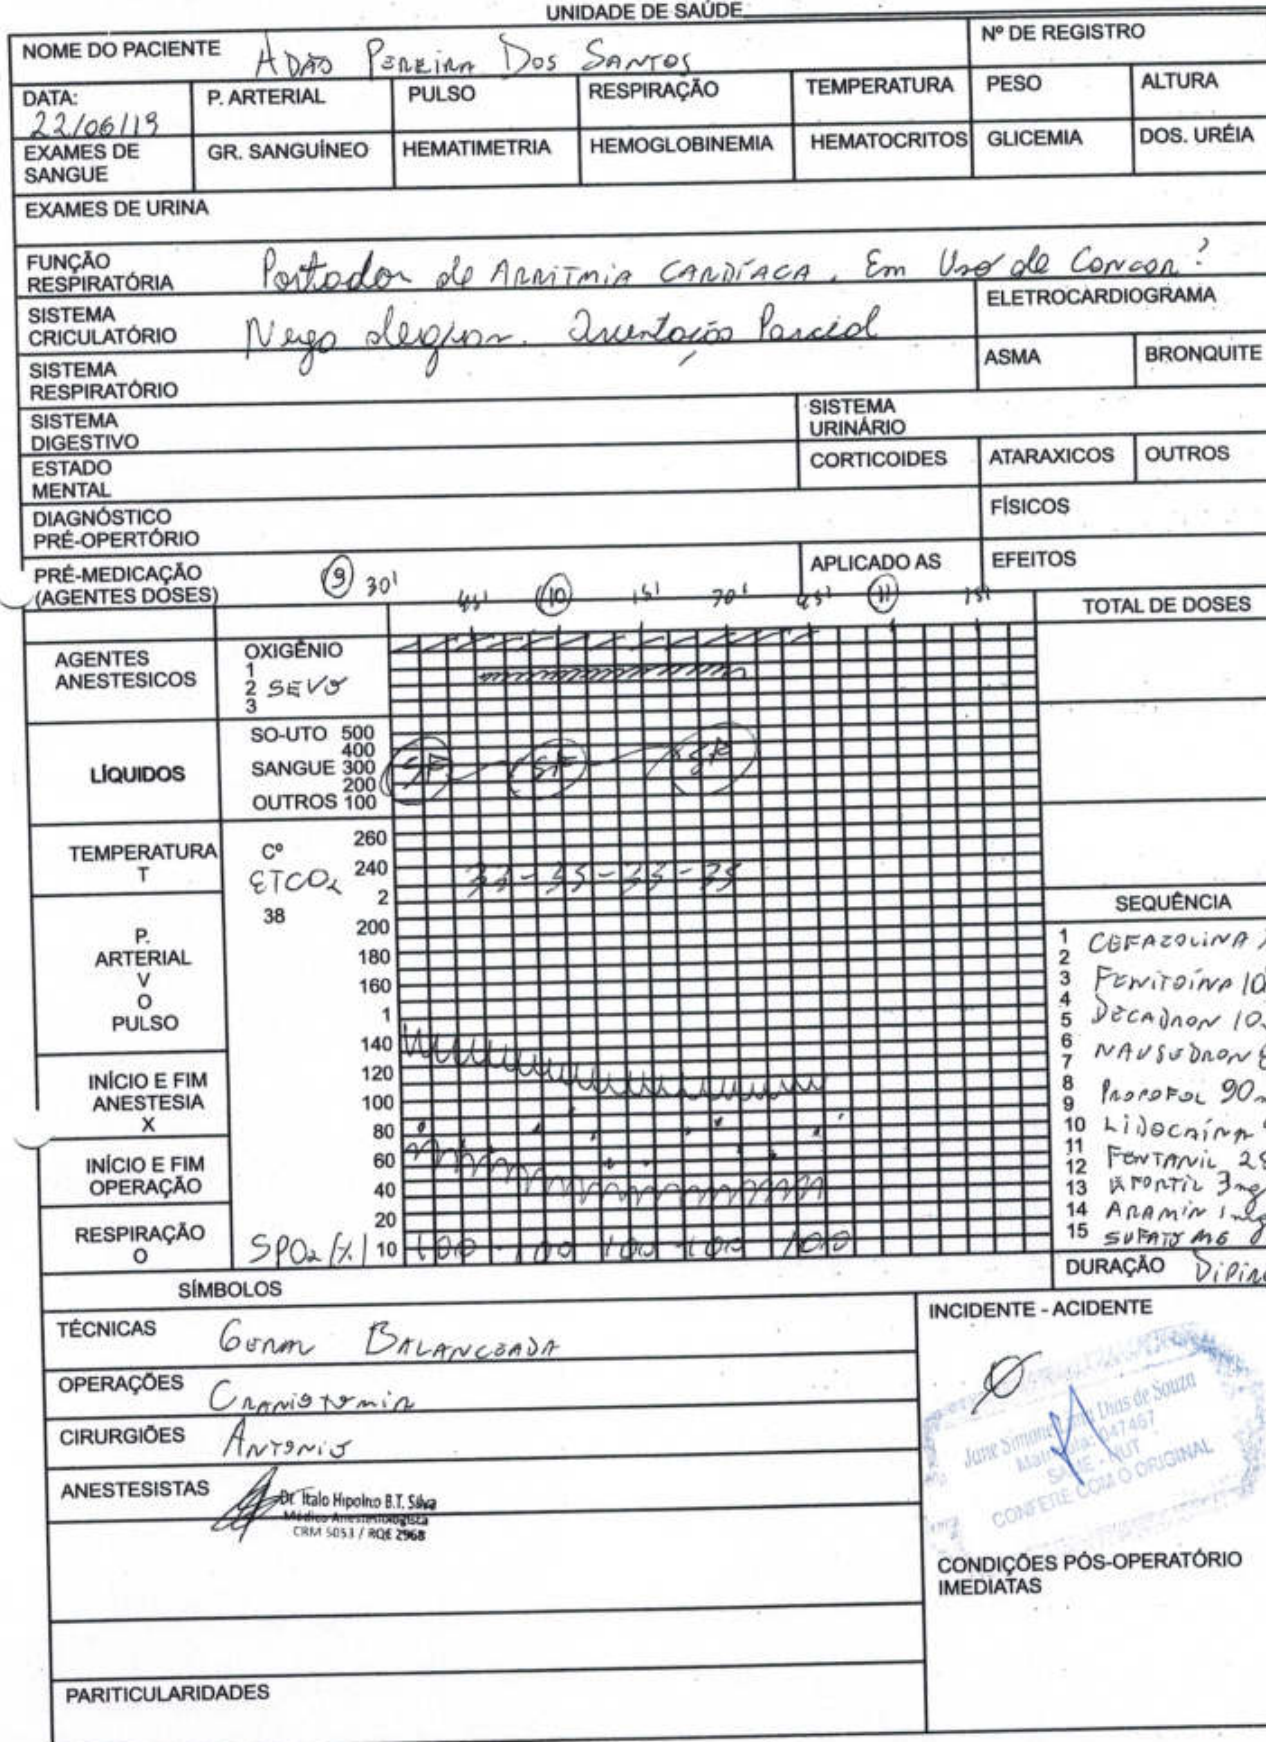 UNIDADE DE SAÚDE
NOME DO PACIENTE ADÃO PEREIRA DOS SANTOS Nº DE REGISTRO
DATA: 22/06/19 P. ARTERIAL PULSO RESPIRAÇÃO TEMPERATURA PESO ALTURA
EXAMES DE SANGUE GR. SANGUÍNEO HEMATIMETRIA HEMOGLOBINEMIA HEMATOCRITOS GLICEMIA DOS. URÉIA
EXAMES DE URINA
FUNÇÃO RESPIRATÓRIA Portador de ARRITMIA CARDÍACA. Em Uso de Concor?
SISTEMA CRICULATÓRIO Nega alergias. Orientação Parcial ELETROCARDIOGRAMA
SISTEMA RESPIRATÓRIO ASMA BRONQUITE
SISTEMA DIGESTIVO SISTEMA URINÁRIO
ESTADO MENTAL CORTICOIDES ATARAXICOS OUTROS
DIAGNÓSTICO PRÉ-OPERTÓRIO FÍSICOS
PRÉ-MEDICAÇÃO (AGENTES DOSES) APLICADO AS EFEITOS
9 30' 45' 10 15' 45' 11 15'
TOTAL DE DOSES
AGENTES ANESTESICOS OXIGÊNIO
1
2 SEVO
3
LÍQUIDOS
SO-UTO 500
400
SANGUE 300
200
OUTROS 100
SF SF
TEMPERATURA T Cº
ETCO2
38
260
240
2
200
180
160
1
140
120
100
80
60
40
20
10
P. ARTERIAL V O PULSO
INÍCIO E FIM ANESTESIA X
INÍCIO E FIM OPERAÇÃO
RESPIRAÇÃO O
SPO2 (%) 100 100 100 100 100
SEQUÊNCIA
1 CEFAZOLINA
2
3 FENITOÍNA
4
5 DECADRON
6
7 NAUSEDRON
8
9 PROPOFOL 90
10 LIDOCAÍNA
11
12 FENTANIL
13 EFORTIL 3mg
14 ARAMIN 1mg
15 SUFATO MG
DURAÇÃO
SÍMBOLOS
TÉCNICAS GERAL BALANCEADA
OPERAÇÕES CRANIOTOMIA
CIRURGIÕES ANTONIO
ANESTESISTAS
Dr. Italo Hipolito B.T. Silva
Médico Anestesiologista
CRM 5053 / RQE 2968
INCIDENTE - ACIDENTE
Ø
Jane Simone Dias de Souza
Matrícula: 047467
SAME - HUT
CONFERE COM O ORIGINAL
CONDIÇÕES PÓS-OPERATÓRIO IMEDIATAS
PARITICULARIDADES